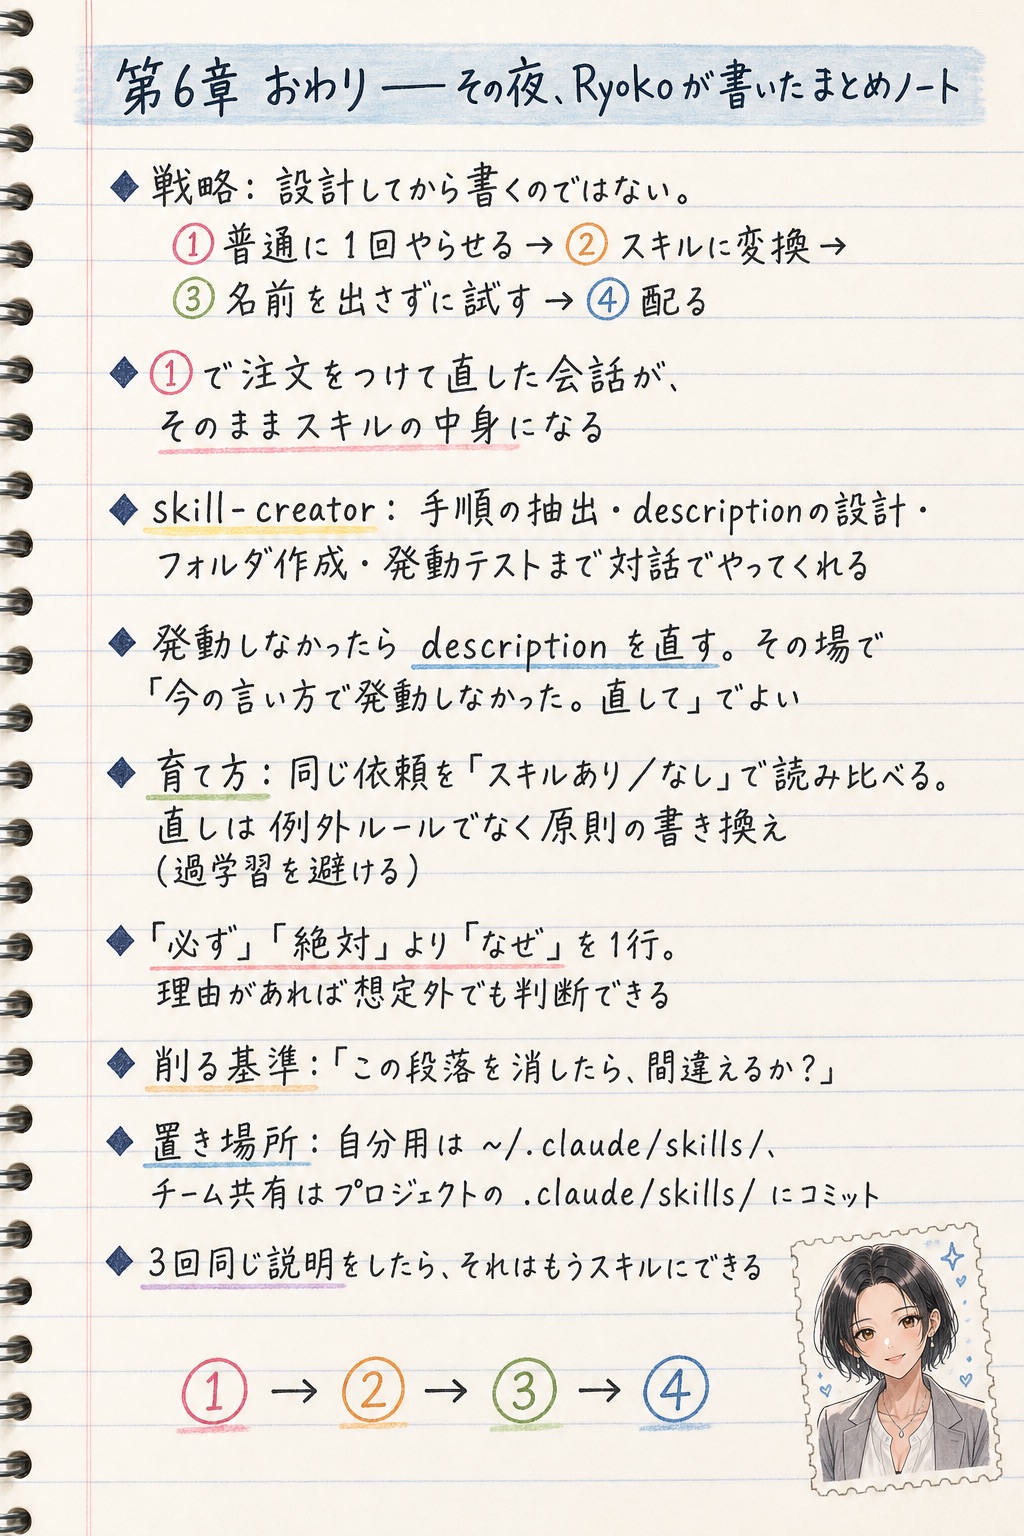 第6章 おわり ── その夜、Ryokoが書いたまとめノート
◆ 戦略： 設計してから書くのではない。
① 普通に 1回やらせる → ② スキルに変換 →
③ 名前を出さずに試す → ④ 配る
◆ ① で注文をつけて直した会話が、
そのままスキルの中身になる
◆ skill-creator： 手順の抽出・descriptionの設計・
フォルダ作成・発動テストまで対話でやってくれる
◆ 発動しなかったら description を直す。その場で
「今の言い方で発動しなかった。直して」でよい
◆ 育て方： 同じ依頼を「スキルあり／なし」で読み比べる。
直しは 例外ルールでなく原則の書き換え
(過学習を避ける)
◆ 「必ず」「絶対」より「なぜ」を1行。
理由があれば想定外でも判断できる
◆ 削る基準：「この段落を消したら、間違えるか？」
◆ 置き場所： 自分用は ~/.claude/skills/、
チーム共有はプロジェクトの .claude/skills/ にコミット
◆ 3回同じ説明をしたら、それはもうスキルにできる
① → ② → ③ → ④